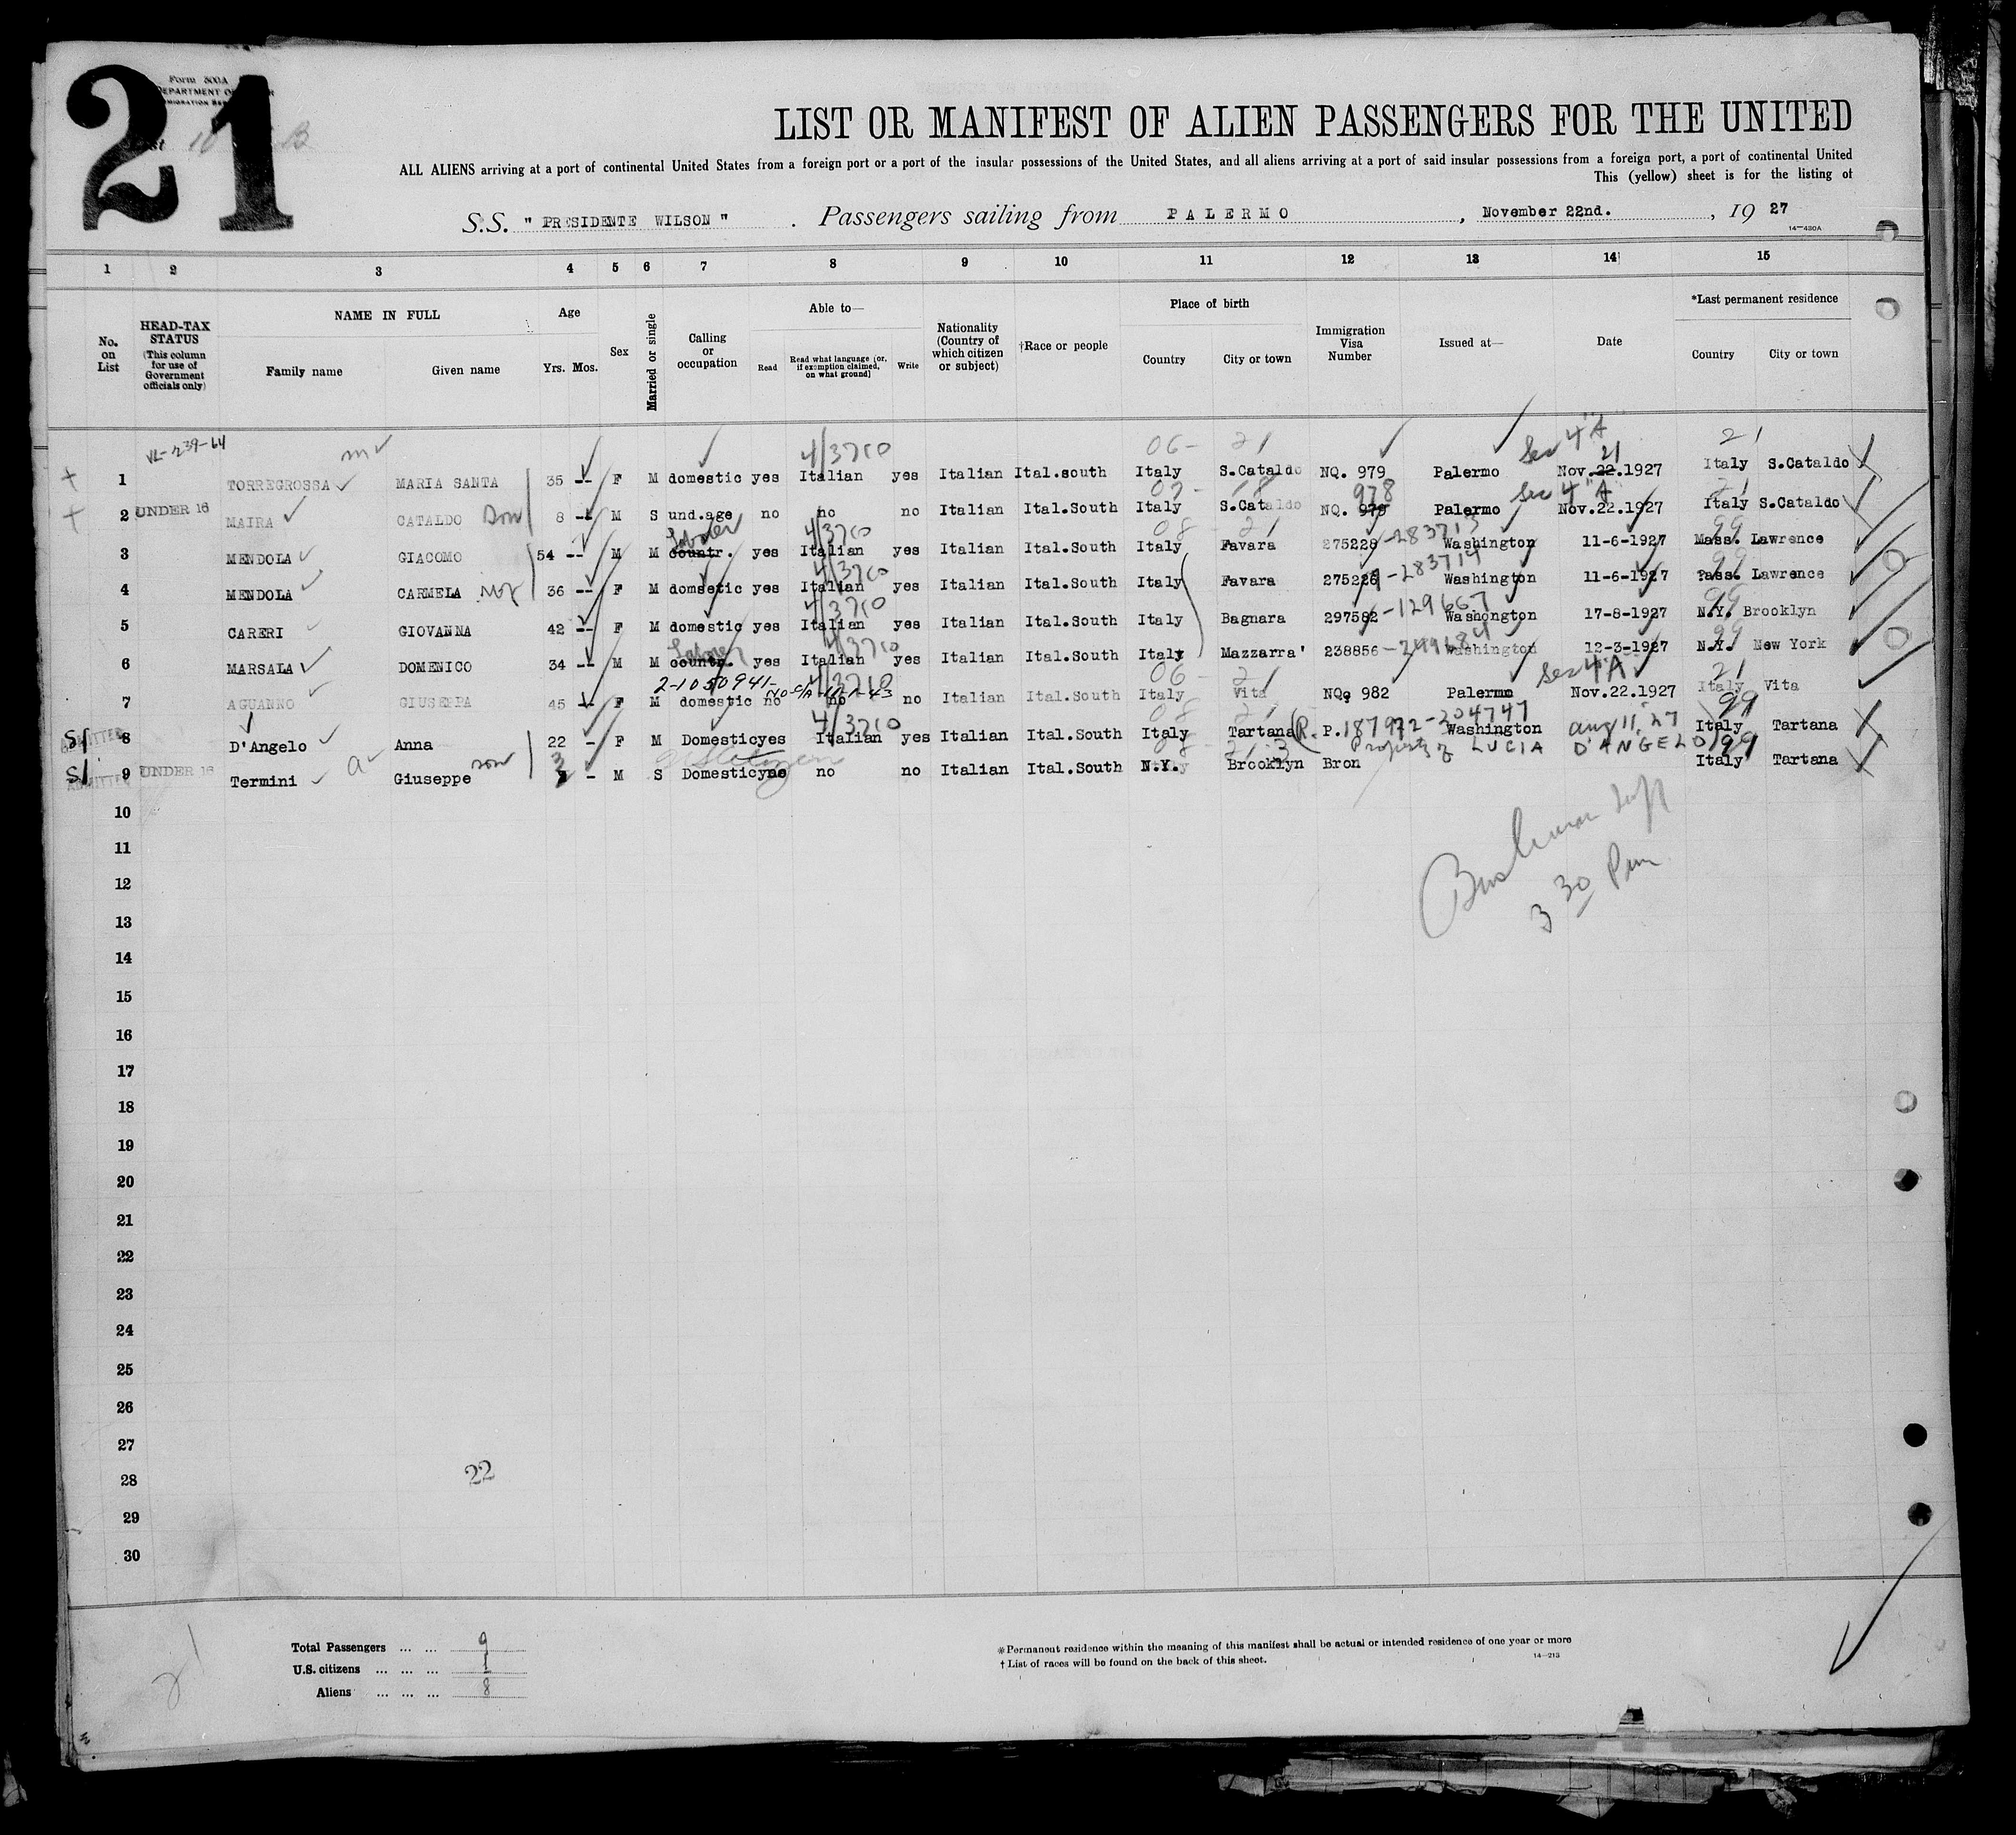 21
Form 500A
DEPARTMENT OF
LIST OR MANIFEST OF ALIEN PASSENGERS FOR THE UNITED
ALL ALIENS arriving at a port of continental United States from a foreign port or a port of the insular possessions of the United States, and all aliens arriving at a port of said insular possessions from a foreign port, a port of continental United
This (yellow) sheet is for the listing of
S.S. " PRESIDENTE WILSON " . Passengers sailing from PALERMO , November 22nd. , 19 27
14—430A
1 2 3 4 5 6 7 8 9 10 11 12 13 14 15
No. on List
HEAD-TAX STATUS (This column for use of Government officials only)
NAME IN FULL
Family name Given name
Age
Yrs. Mos.
Sex
Married or single
Calling or occupation
Able to—
Read Read what language (or, if exemption claimed, on what ground) Write
Nationality (Country of which citizen or subject)
†Race or people
Place of birth
Country City or town
Immigration Visa Number
Issued at—
Date
*Last permanent residence
Country City or town
VL-239-64 4/3710 06- 21 Sec 4"A" 21 21
1 TORREGROSSA MARIA SANTA 35 -- F M domestic yes Italian yes Italian Ital.south Italy S.Cataldo NQ. 979 Palermo Nov.22.1927 Italy S.Cataldo
978 Sec 4"A"
2 UNDER 16 MAIRA CATALDO son 8 -- M S und.age no no no Italian Ital.South Italy S.Cataldo NQ. 979 Palermo Nov.22.1927 Italy S.Cataldo
Laborer 4/3710 08- 21 99
3 MENDOLA GIACOMO 54 -- M M countr. yes Italian yes Italian Ital.South Italy Favara 275228 -283713 Washington 11-6-1927 Mass. Lawrence
4/3710 99
4 MENDOLA CARMELA 36 -- F M domsetic yes Italian yes Italian Ital.South Italy Favara 275226 -283714 Washington 11-6-1927 Pass. Lawrence
4/3710 99
5 CARERI GIOVANNA 42 -- F M domestic yes Italian yes Italian Ital.South Italy Bagnara 297582 -129667 Washongton 17-8-1927 N.Y. Brooklyn
Laborer 4/3710 99
6 MARSALA DOMENICO 34 -- M M countr. yes Italian yes Italian Ital.South Italy Mazzarra' 238856 -249684 Washington 12-3-1927 N.Y. New York
2-1050941- 4/3710 06 - 21 Sec 4"A" 21
7 AGUANNO GIUSEPPA 45 -- F M domestic no no no Italian Ital.South Italy Vita NQ. 982 Palermo Nov.22.1927 Italy Vita
4/3710 08 21 99
8 ADMITTED D'Angelo Anna 22 - F M Domestic yes Italian yes Italian Ital.South Italy Tartana (R. P.187972-204747 Washington aug 11, 27 Italy Tartana
Property of LUCIA D'ANGELO 99
9 ADMITTED UNDER 16 Termini Giuseppe son 3 - M S Domestic no no Italian Ital.South N.Y. Brooklyn Bron Italy Tartana
10
11
12
3 30 Pm
13
14
15
16
17
18
19
20
21
22
23
24
25
26
27
28 22
29
30
21
Total Passengers ... ... 9
U.S. citizens ... ... ... 1
Aliens ... ... ... 8
*Permanent residence within the meaning of this manifest shall be actual or intended residence of one year or more
† List of races will be found on the back of this sheet.
14—213